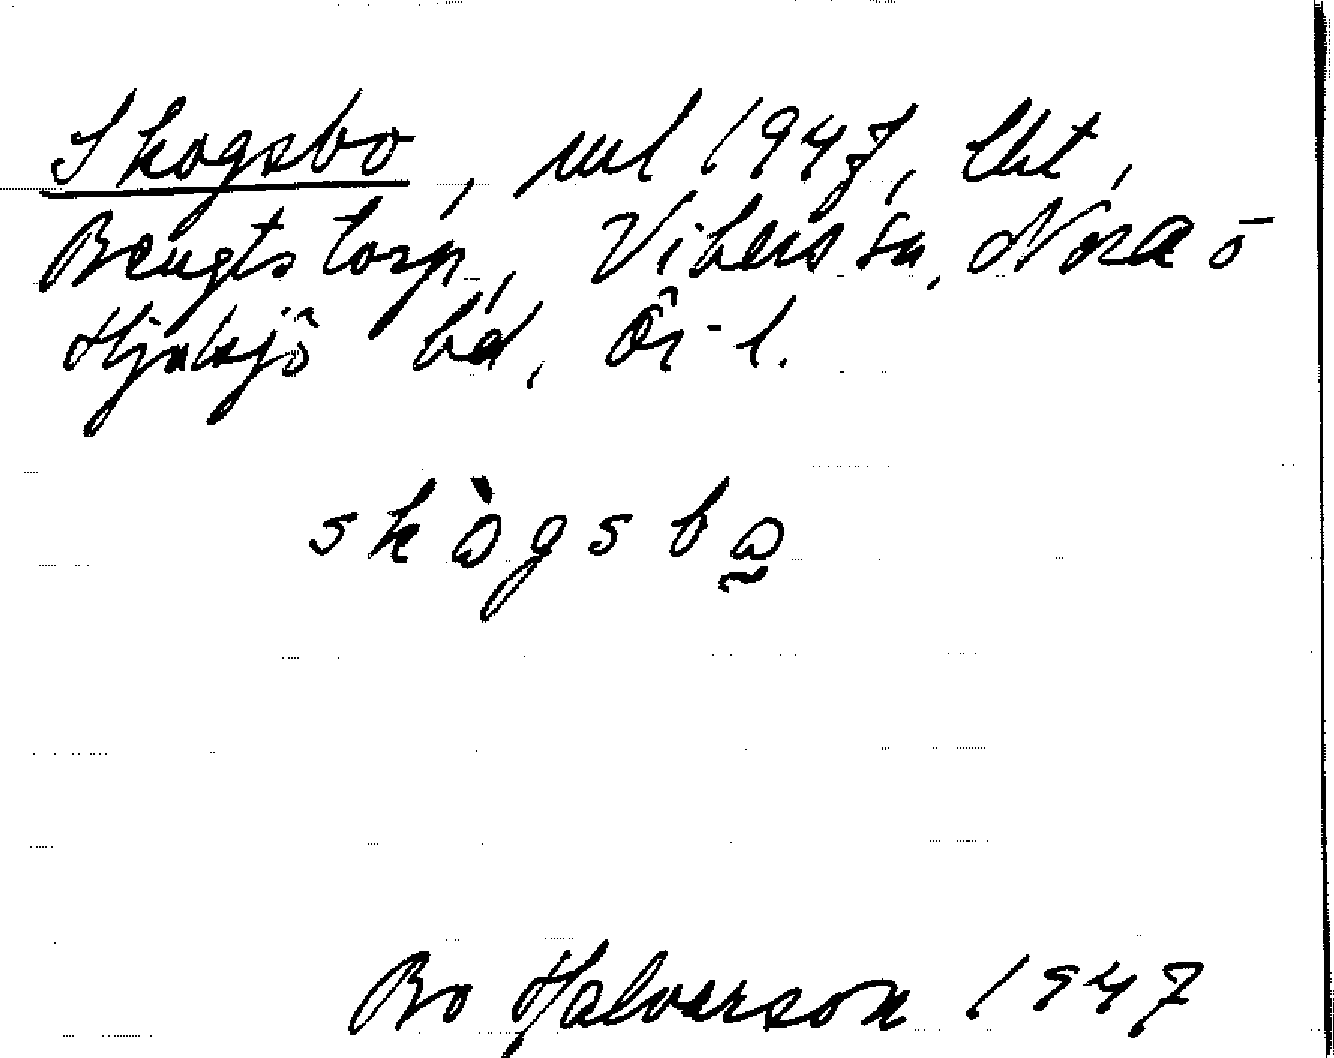 Skogsbo, uul 1947, lht,
Bengtstorp, Vibers sn, Nora o
Hjulsjö bd, Ör-l.
skògsbo̰
Bo Halvarson 1947